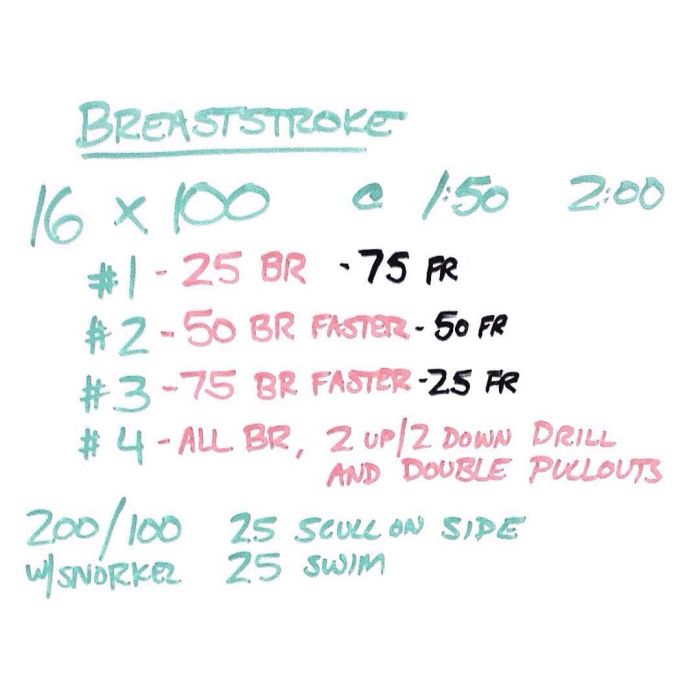 BREASTSTROKE
16 x 100 @ 1:50 2:00
#1 - 25 BR - 75 FR
#2 - 50 BR FASTER - 50 FR
#3 - 75 BR FASTER - 25 FR
#4 - ALL BR, 2 UP/2 DOWN DRILL
AND DOUBLE PULLOUTS
200/100 25 SCULL ON SIDE
W/SNORKEL 25 SWIM